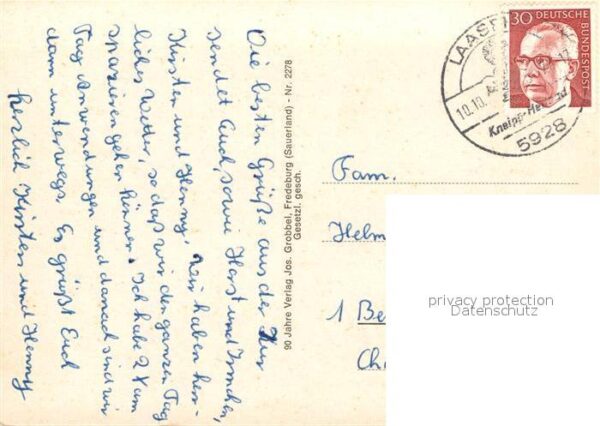 Die besten Grüße aus der Kur
sendet Euch, sowie Horst und Irmchen,
Kirsten und Henny. Wir haben herr-
liches Wetter, so daß wir den ganzen Tag
spazierengehen können. Ich habe 2 x am
Tag Anwendungen und danach sind wir
dann unterwegs. Es grüßt Euch
herzlich Kirsten und Henny
90 Jahre Verlag Jos. Grobbel, Fredeburg (Sauerland) - Nr. 2278
Gesetzl. gesch.
30 DEUTSCHE
BUNDESPOST
10.10.
5928
Fam.
Helm
1 Be
Ch
privacy protection
Datenschutz